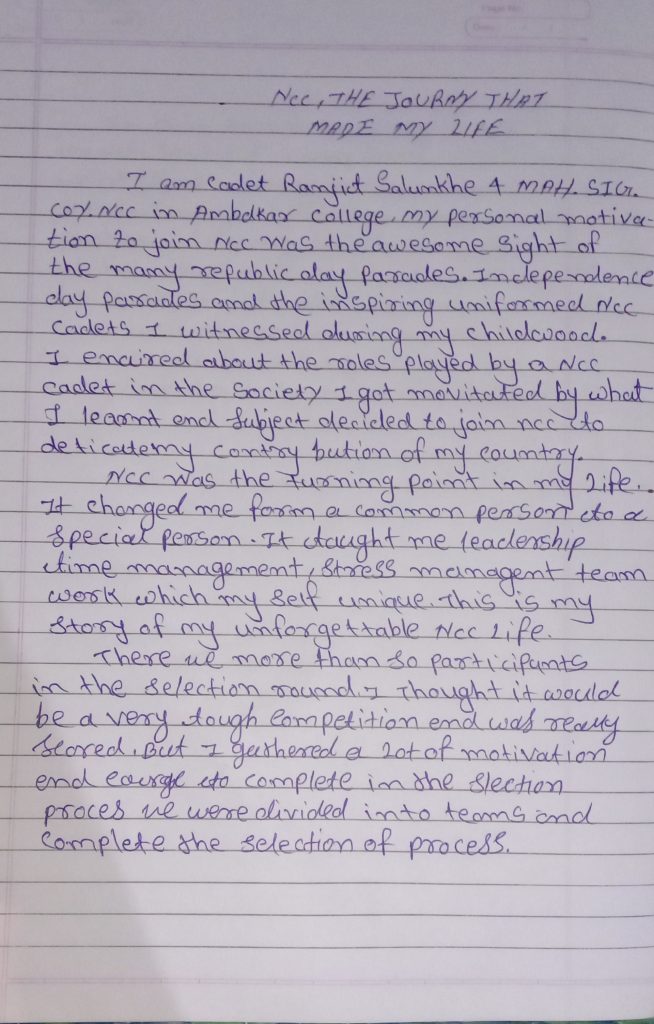 Ncc, THE JOURNY THAT
MADE MY LIFE
I am Cadet Ramjit Salunkhe 4 MAH. SIG.
COY. NCC in Ambdkar College. my personal motiva-
tion to join Ncc was the awesome sight of
the many republic day parades. Independence
day parades and the inspiring uniformed Ncc
Cadets I witnessed during my childwood.
I enaired about the roles played by a NCC
cadet in the Society I got movitated by what
I learnt end subject decided to join ncc to
deticatemy contry bution of my country.
NCC was the Turning point in my Life.
It changed me form a common person to a
special person. It taught me leadership
time management, Stress managent team
work which my self unique. This is my
Story of my unforgettable Ncc Life.
There we more than so participants
in the selection round. I Thought it would
be a very tough Competition end was really
Scored. But I gathered a Lot of motivation
end to complete in the Slection
proces we were divided into teams and
Complete the selection of process.